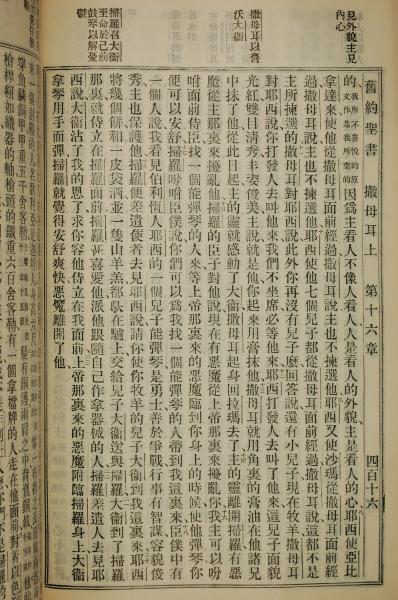 舊約聖書 撒母耳上 第十六章 四百十六
見外貌主見
內心
撒母耳以膏
沃大衛
掃羅召大衛
至命於己前
鼓琴以解憂
鬱
的、我所不喜悅的原文作是我所棄的因爲主看人不像人看人、人是看人的外貌、主是看人的心、耶西使亞比
拿達來使他從撒母耳面前經過、撒母耳說主也不揀選他、耶西又使沙瑪從撒母耳面前經
過、撒母耳說主也不揀選他、耶西使他七個兒子都從撒母耳面前經過、撒母耳說這都不是
主所揀選的、撒母耳對耶西說、此外你再沒有兒子麽、回答說、還有小兒子現在牧羊、撒母耳
對耶西說、你打發人去叫他來、我們不坐席必等他來、耶西打發人去叫了他來、這兒子面
光紅雙目清秀丰姿俊美、主說就是他、你起來用膏抹他、撒母耳就用角裏的膏油在他諸兄
中抹了他、從此日起主的靈就感動了大衛、撒母耳起身回拉瑪去了、主的靈離開掃羅、有惡
魔從主那裏來擾亂他、掃羅的臣子對他說、現在有惡魔從上帝那裏來擾亂你、我主可以吩
咐面前侍臣、找一個能彈琴的人來、等上帝那裏來的惡魔臨到你身上的時候、使他彈琴、你
便可以安舒、掃羅吩咐臣僕說、你們可以爲我找一個能彈琴的人帶到我這裏來、臣僕中有
一個人說、我看見伯利恆人耶西的一個兒子能彈琴、是勇士、善於爭戰、行事有智謀、容貌俊
秀、主也保護他、掃羅差遣使者去見耶西說、請你使你牧羊的兒子大衛到我這裏來、耶西
將幾個餅和一皮袋酒、並一隻山羊羔、都馱在驢上、交給兒子大衛送與掃羅、大衛到了掃羅
那裏、就侍立在掃羅面前、掃羅甚喜愛他、派他跟隨自己作拿器械的人、掃羅差遣人去見耶
西說、大衛沾了我的恩了、求你容他侍立在我面前、上帝那裏來的惡魔附臨掃羅身上、大衛
拿琴用手面彈、掃羅就覺得安舒爽快、惡魔離開了他、
穿魚鱗銅甲、甲重五千舍客勒
槍桿粗如織器的軸、槍頭的鐵重六百舍客勒、有一個拿擋牌的人、走在他面前